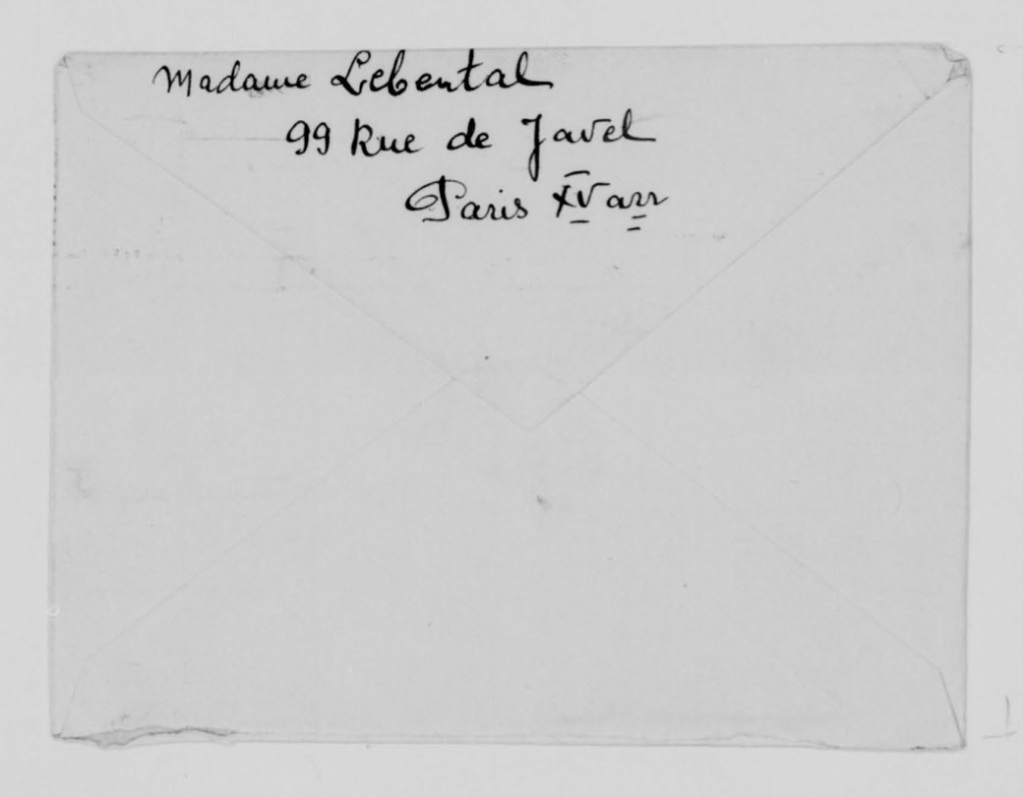 Madame Lebental
99 Rue de Javel
Paris XV arr